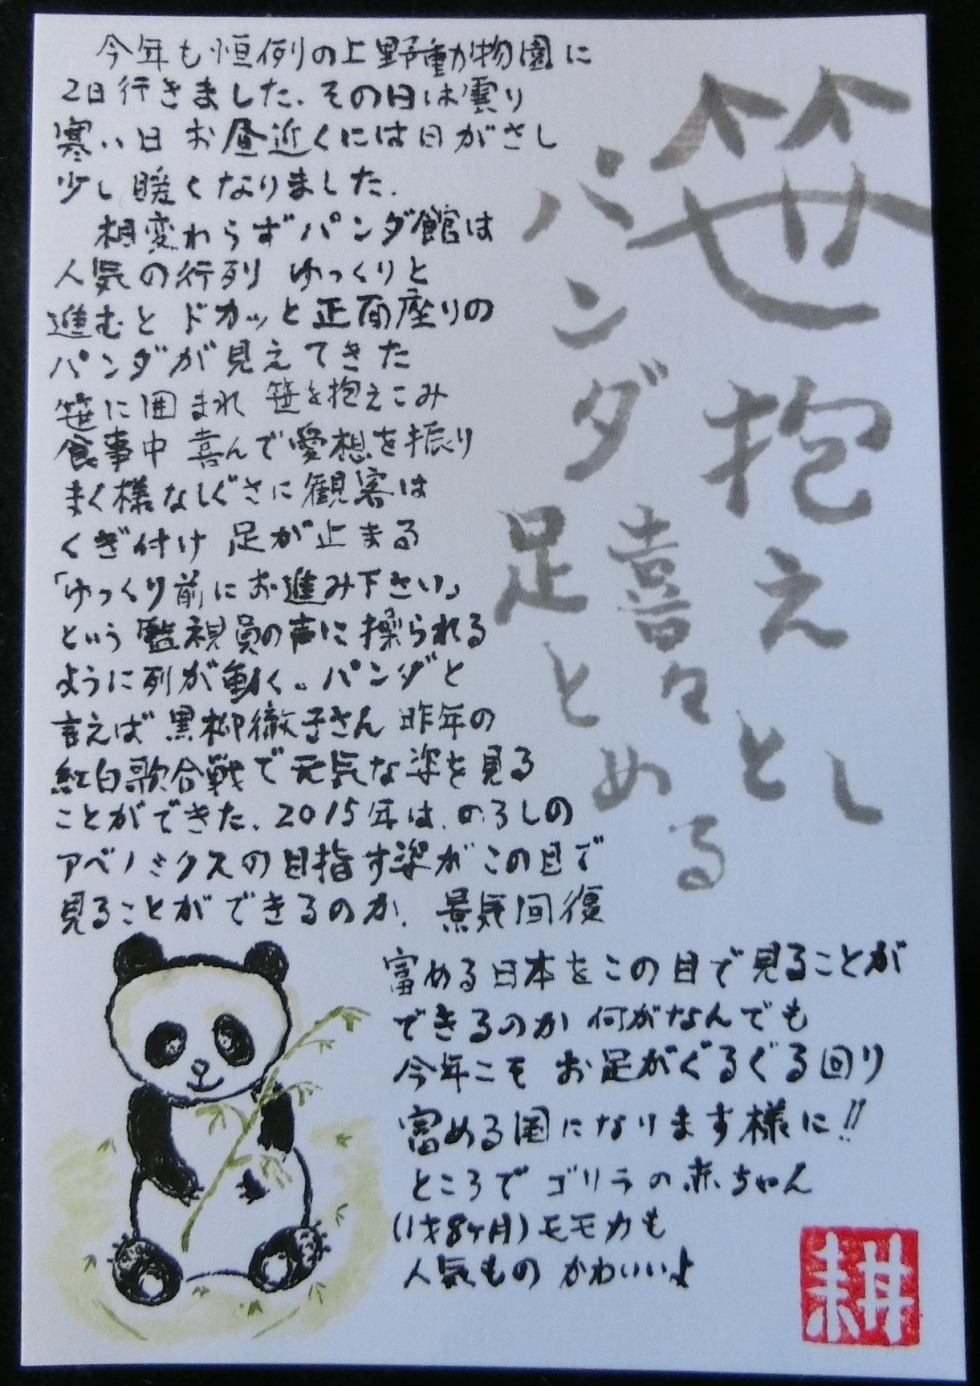 笹抱えとし
パンダ喜々
足とめる
今年も恒例の上野動物園に
2日行きました、その日は雲り
寒い日 お昼近くには日がさし
少し暖くなりました、
相変わらずパンダ館は
人気の行列 ゆっくりと
進むと ドカッと正面座りの
パンダが見えてきた
笹に囲まれ 笹を抱えこみ
食事中 喜んで愛想を振り
まく様なしぐさに観客は
くぎ付け 足が止まる
「ゆっくり前にお進み下さい」
という監視員の声に操られる
ように列が動く。パンダと
言えば 黒柳徹子さん 昨年の
紅白歌合戦で元気な姿を見る
ことができた、2015年は、のろしの
アベノミクスの目指す姿がこの目で
見ることができるのか、景気回復
富める日本をこの目で見ることが
できるのか 何がなんでも
今年こそ お足がぐるぐる回り
富める国になります様に!!
ところで ゴリラの赤ちゃん
(1才8ヶ月)モモカも
人気もの かわいいよ
耕